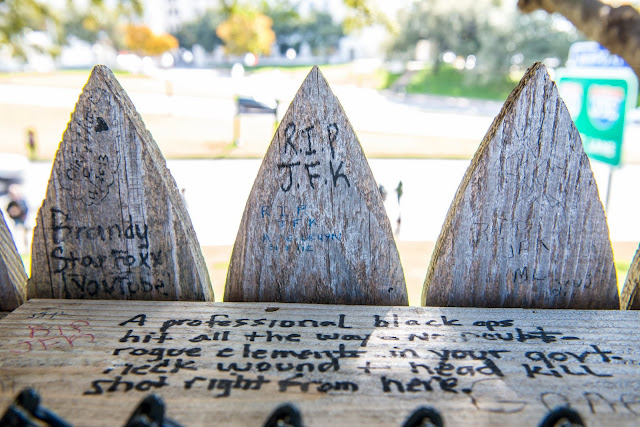 Brandy
StarFoxx
YouTube
RIP
J.F.K
R.I.P
JFK
JFK
RIP
JFK
A professional black ops
hit all the way - No doubt -
rogue elements in your govt.
neck wound + head kill
shot right from here.